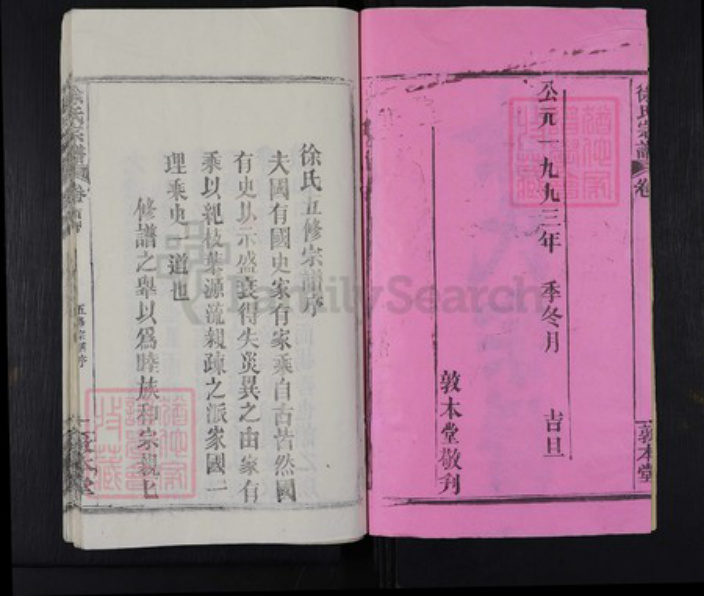 徐氏宗譜
卷
敦本堂
公元一九九三年 季冬月 吉旦
敦本堂敬刋
徐氏五修宗譜序
夫國有國史家有家乘自古皆然國
有史以示盛衰得失災異之由家有
乘以紀枝葉源流親疎之派家國一
理乘史一道也
修譜之舉以爲睦族和宗親也
徐氏宗譜
卷首
五修宗譜序
敦本堂
FamilySearch